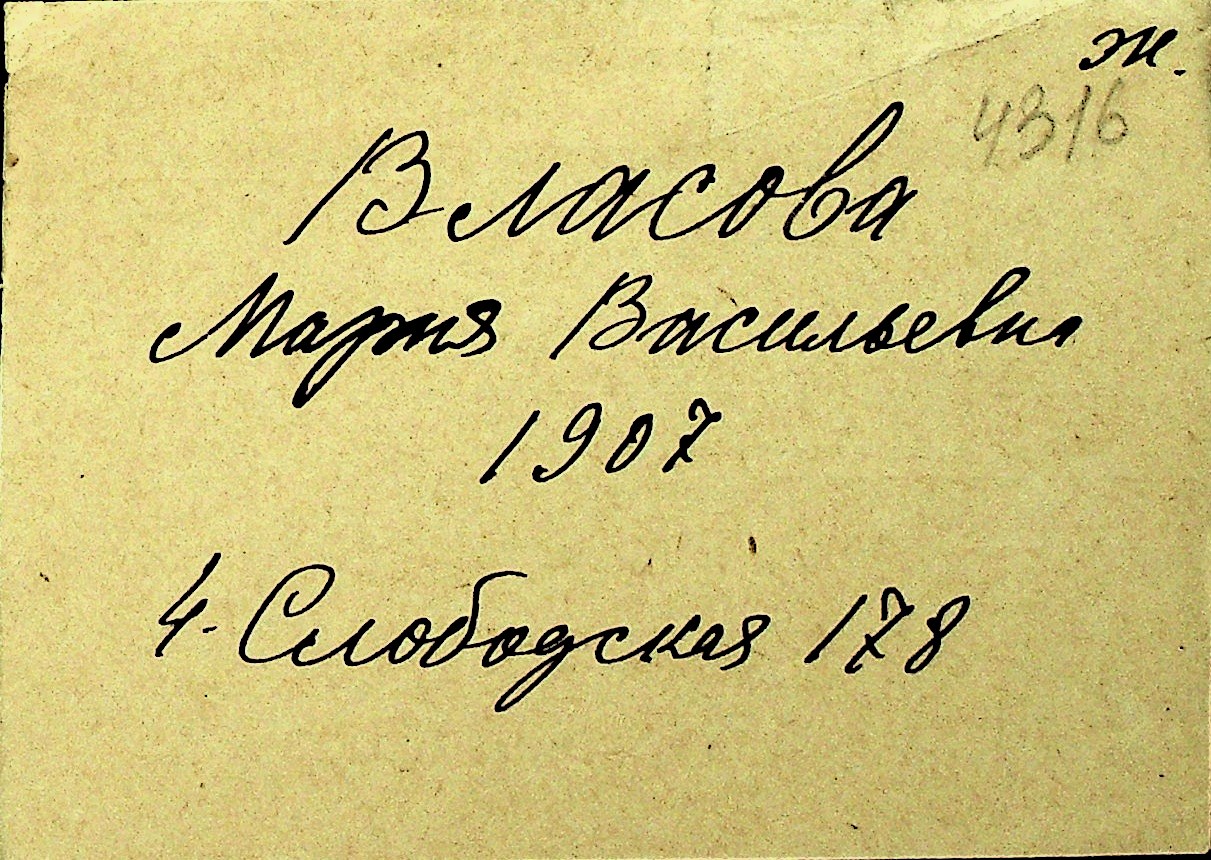 ж.
4316
Власова
Мария Васильевна
1907
4-Слободская 178